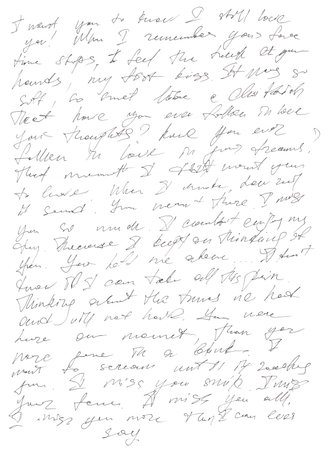 I want you to know I still love
you! When I remember your face
time stops, I feel the touch of your
hands, my first kiss. It was so
soft, so sweet like a
that have you ever fallen in love
your thoughts? have you ever
fallen in love in your dreams?
that moment I felt want you
to leave When I woke,
it sound. You weren't there I miss
you so much. I couldn't enjoy my
day because I kept on thinking of
you. You left me alone... I don't
know if I can take all this pain
thinking about the times we had
and will not have. You were
here one moment than you
were gone in a blink. I
want to scream until I'm reaching
you. I miss you smile I miss
your face. I miss you all.
I miss you more than I can ever
say.